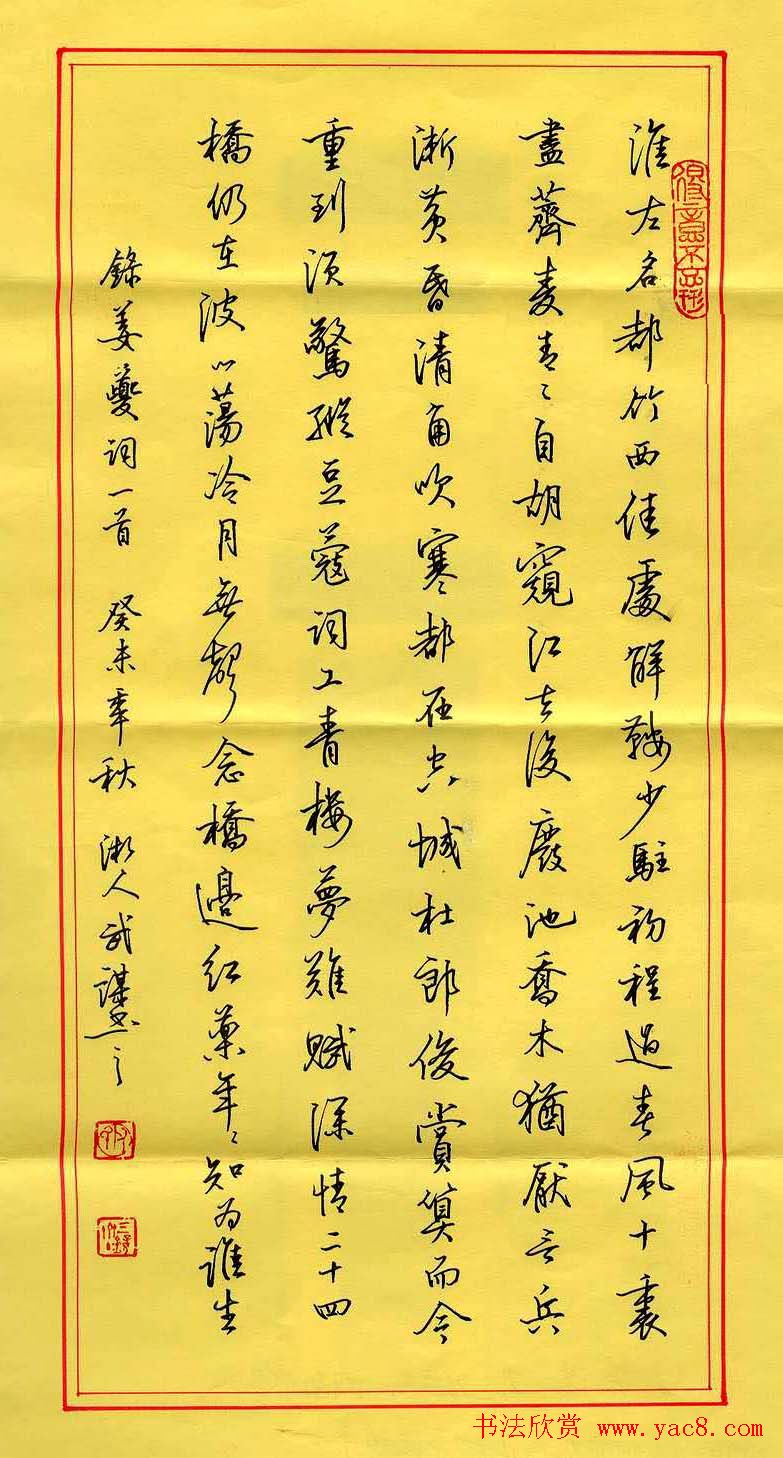 淮左名都竹西佳處解鞍少駐初程過春風十裏
盡薺麥青々自胡窺江去後廢池喬木猶厭言兵
漸黃昏清角吹寒都在空城杜郎俊賞算而今
重到須驚縱豆蔻詞工青樓夢難賦深情二十四
橋仍在波心蕩冷月無聲念橋邊紅藥年々知為誰生
錄姜夔詞一首 癸未季秋 人武謀書之
书法欣赏 www.yac8.com